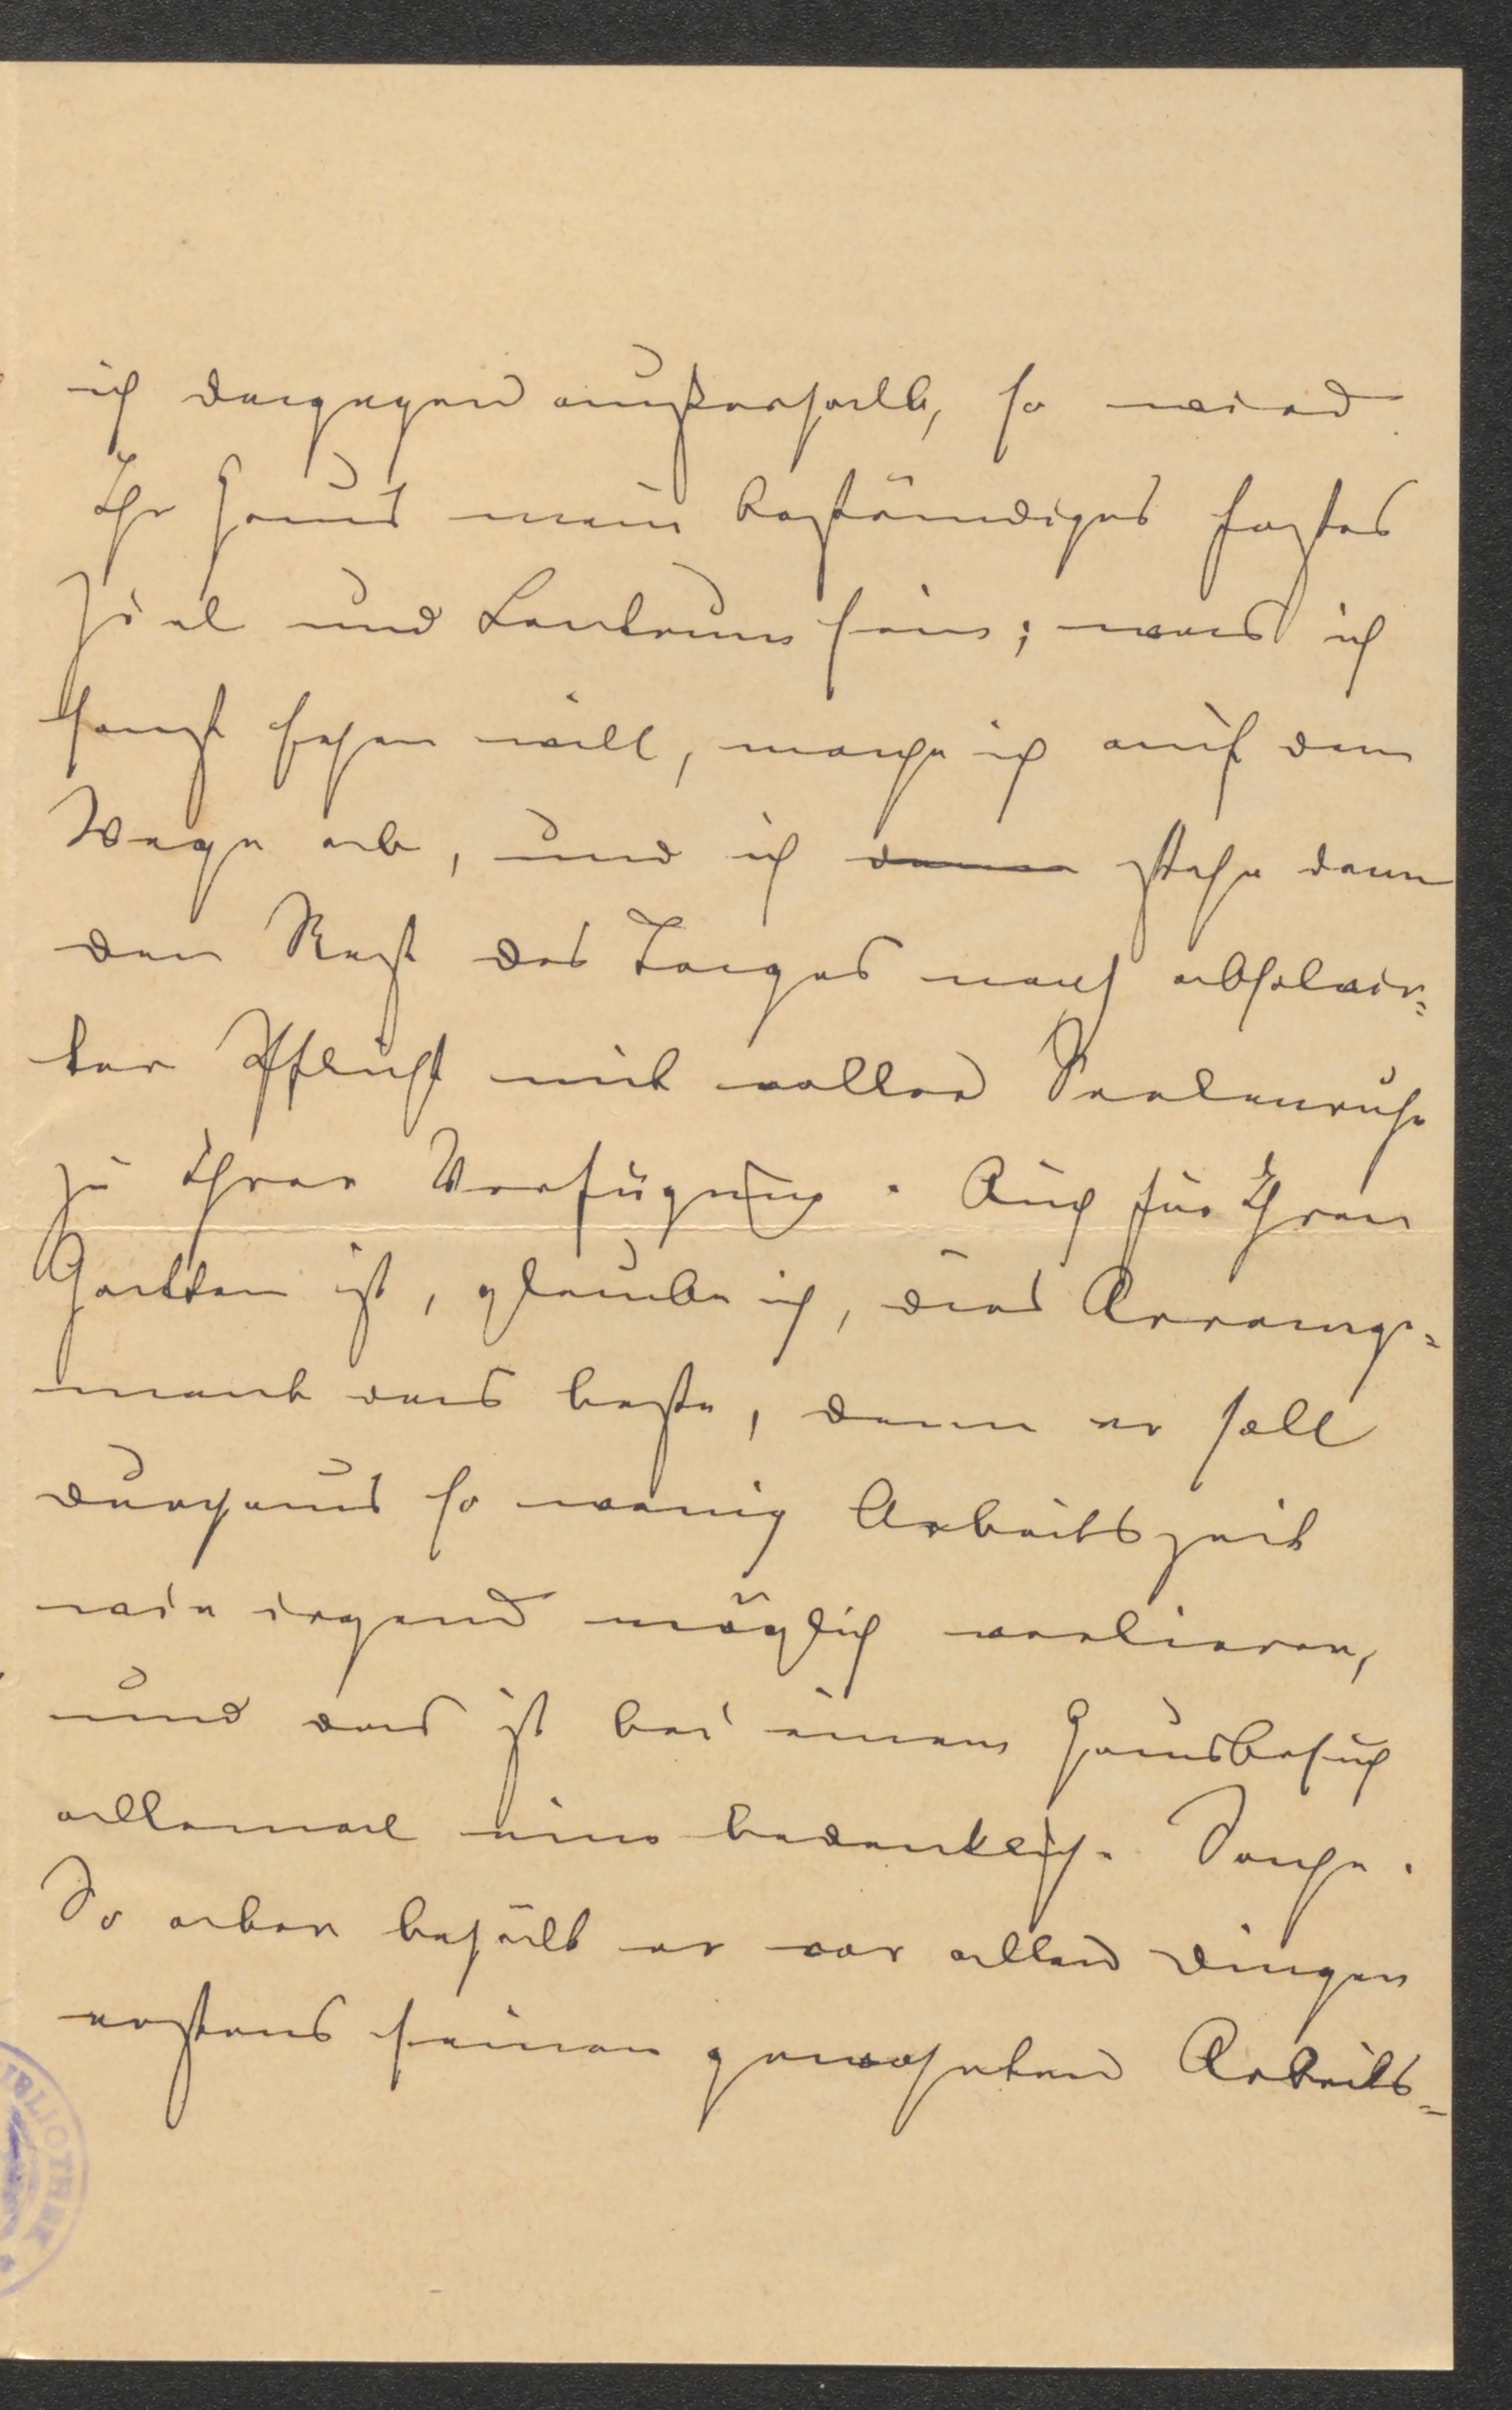 ich dagegen außerhalb, so wird
Ihr Haus mein beständiges festes
Ziel und Centrum sein; was ich
sonst sehen will, mache ich auf dem
Wege ab, und ich dann stehe dann
den Rest des Tages nach absolvir=
ter Pflicht mit voller Seelenruhe
zu Ihrer Verfügung. Auch für Ihren
Gatten ist, glaube ich, dies Arrange=
ment das beste, denn er soll
durchaus so wenig Arbeitszeit
wie irgend möglich verlieren,
und das ist bei einem Hausbesuch
allemal eine bedenkliche Sache.
So aber behält er vor allen Dingen
erstens seinen gewohnten Arbeits=